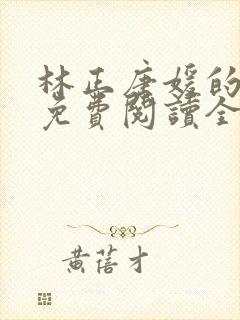 林正唐媛的
免費閱讀全
黃蓓才